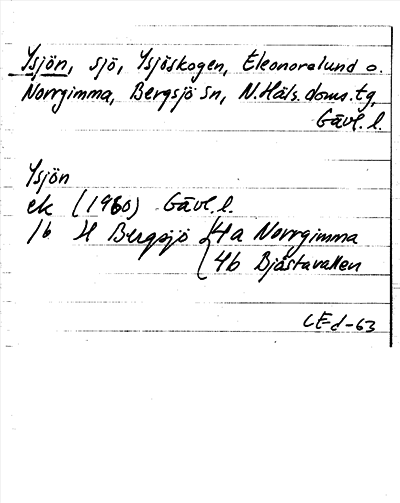 Ysjön, sjö, Ysjöskogen, Eleonoralund o.
Norrgimma, Bergsjö sn, N.Häls. doms. tg,
Gävl. l.
Ysjön
ek (1960) Gävl. l.
16 H Bergsjö { 4a Norrgimma
4b Bjåstavallen
CE-d-63